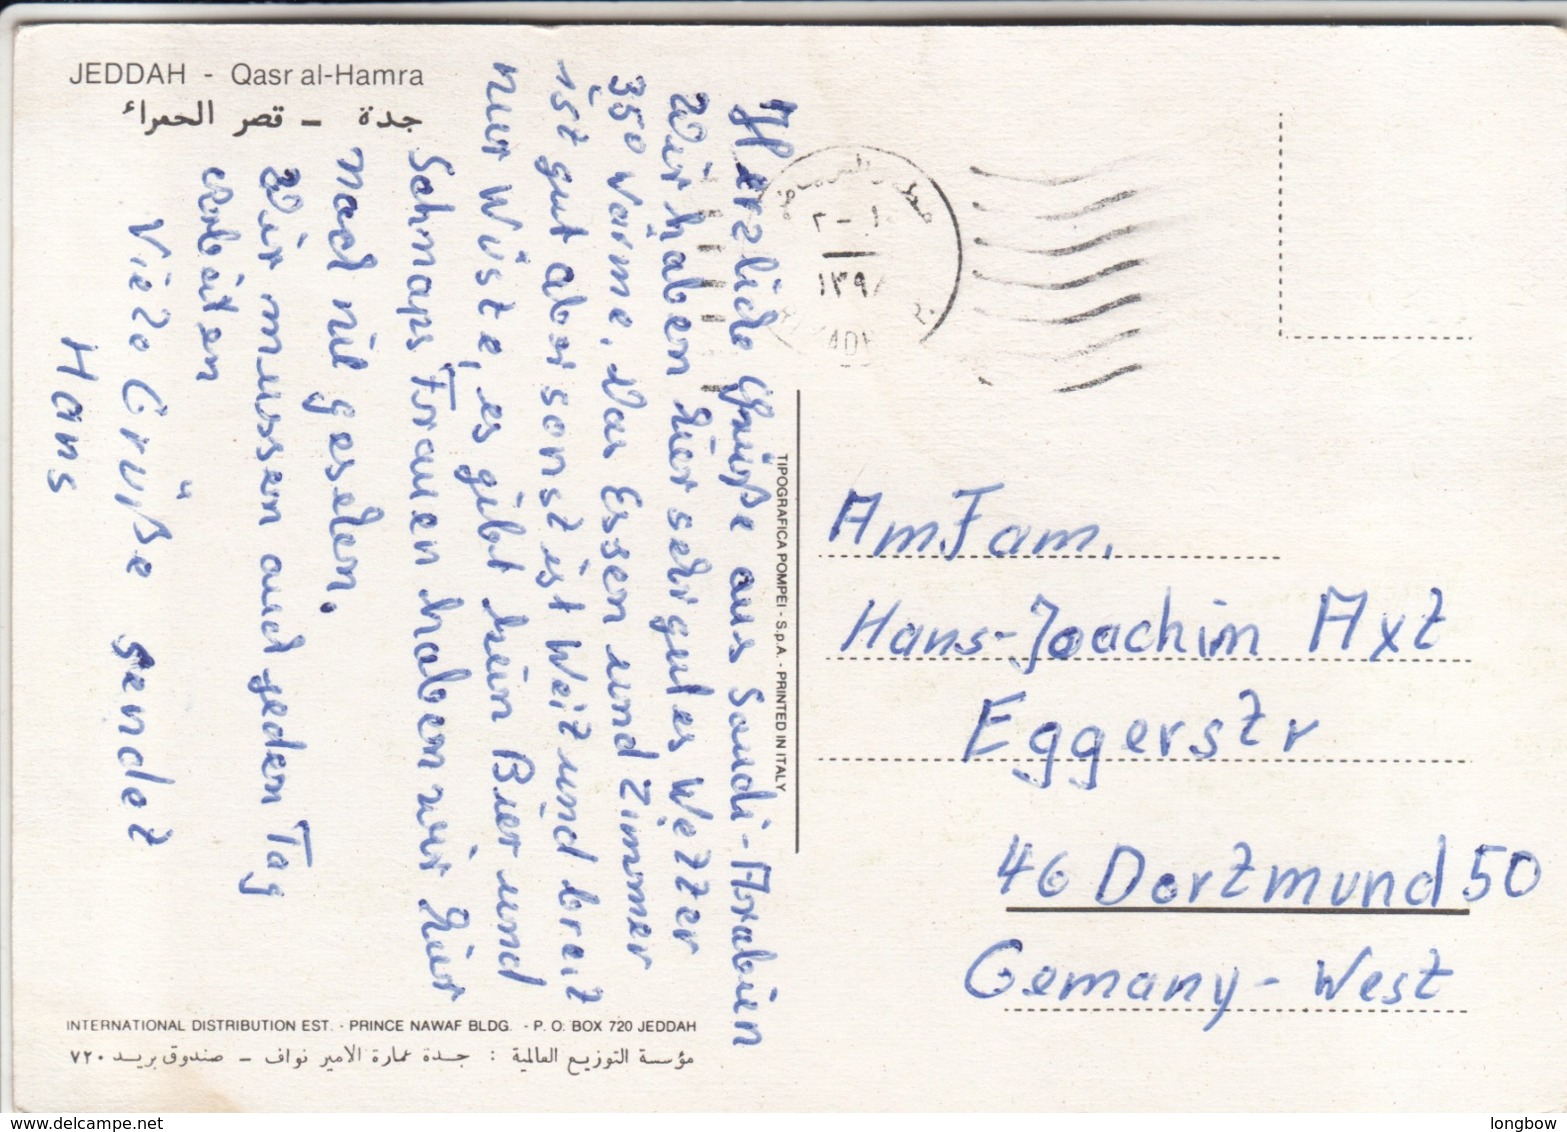 JEDDAH - Qasr al-Hamra
جدة - قصر الحمراء
Herzliche Grüße aus Saudi-Arabien
Wir haben hier sehr gutes Wetter
350 Warme, Das Essen und Zimmer
ist gut aber sonst ist Weit und breit
nur Wiste, es gibt kein Bier und
Schnaps Frauen haben wir hier
noch nil gesehen.
Wir mussen auch jeden Tag
arbeiten
Viele Grüße sendet
Hans
TIPOGRAFICA POMPEI - S.p.A. - PRINTED IN ITALY
١٣٩
Am Fam.
Hans-Joachim Axt
Eggerstr
46 Dortmund 50
Gemany-West
INTERNATIONAL DISTRIBUTION EST. - PRINCE NAWAF BLDG. - P. O. BOX 720 JEDDAH
مؤسسة التوزيع العالمية : جدة عمارة الامير نواف - صندوق بريد ٧٢٠
longbow